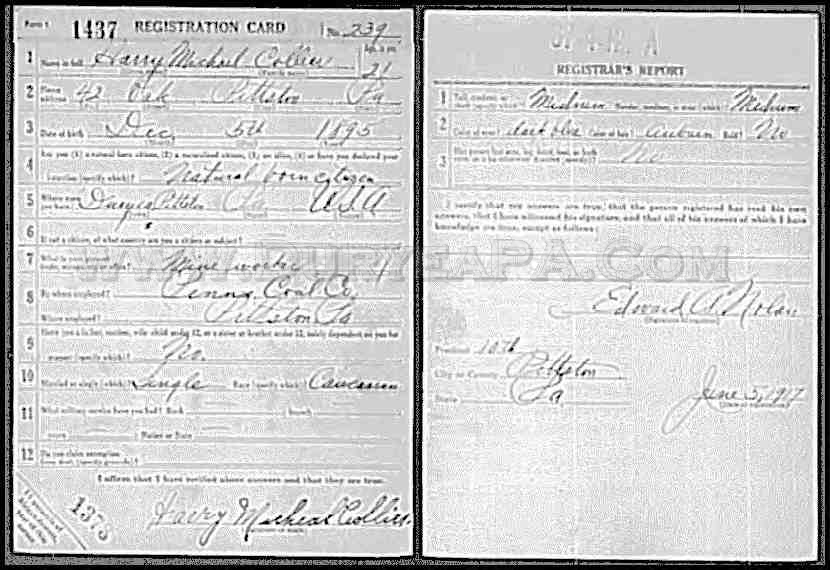 Form 1 1437 REGISTRATION CARD No. 239
1 Name in full Harry Michael Collier Age, in yrs. 21
2 Home address 42 Oak Pittston Pa
3 Date of birth Dec. 5th 1895
4 Are you (1) a natural-born citizen, (2) a naturalized citizen, (3) an alien, (4) or have you declared your
intention (specify which)? Natural born citizen
5 Where were you born? Duryea Pittston Pa USA
6 If not a citizen, of what country are you a citizen or subject?
7 What is your present trade, occupation, or office? Mine worker
8 By whom employed? Penna. Coal Co.
Where employed? Pittston Pa
9 Have you a father, mother, wife, child under 12, or a sister or brother under 12, solely dependent on you for
support (specify which)? No.
10 Married or single (which)? Single Race (specify which)? Caucasian
11 What military service have you had? Rank branch
years Nation or State
12 Do you claim exemption from draft (specify grounds)?
I affirm that I have verified above answers and that they are true.
1373
Harry Micheal Collier
REGISTRAR'S REPORT
1 Tall, medium, or short (specify which)? Medium Slender, medium, or stout (which)? Medium
2 Color of eyes? dark blue Color of hair? Auburn Bald? No
3 Has person lost arm, leg, hand, foot, or both
No
I certify that my answers are true, that the person registered has read his own
answers, that I have witnessed his signature, and that all of his answers of which I have
knowledge are true, except as follows:
WWW.DURYEAPA.COM
Edward A Nolan
(Signature of registrar)
Precinct 10th
City or County Pittston
State Pa
June 5, 1917
(Date of registration)